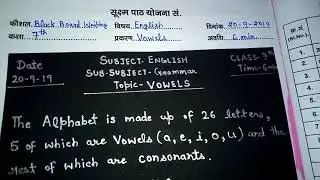 सूक्ष्म पाठ योजना सं.
कौशल Black Board Writing विषय English दिनांक 20-9-2019
कक्षा 7th प्रकरण Vowels अवधि 6 min
Date
20-9-19
SUBJECT-ENGLISH
SUB-SUBJECT-Grammar
Topic-VOWELS
CLASS-7th
Time-6 min
The Alphabet is made up of 26 letters,
5 of which are Vowels (a, e, i, o, u) and the
rest of which are consonants.